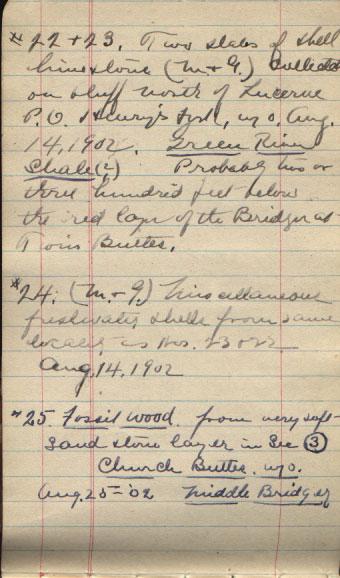 # 22 + 23. Two slabs of shell
limestone (M. + G.) Collected
on bluff north of Lucerne
P.O. Henry's Fork, Wyo, Aug.
14, 1902. Green River
Shale (?) Probably two or
three hundred feet below
the red layer of the Bridger at
Twin Buttes.
*24. (M. + G.) Miscellaneous
freshwater shells from same
locality as Nos. 23 + 22
Aug, 14, 1902
*25. Fossil wood. from very soft
sand stone layer in Sec ③
Church Buttes. Wyo.
Aug. 25 - '02 Middle Bridger